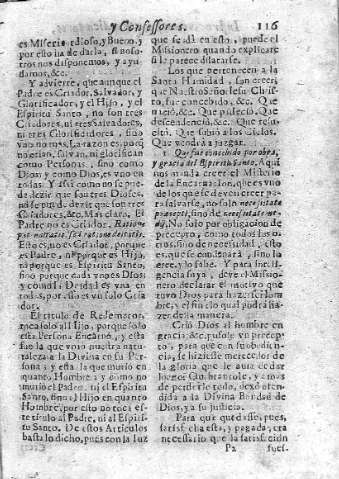 y Confessores. 116
es Misericordioso, y Bueno, y
por esso ha de darla, si noso-
tros nos disponemos, y ayu-
damos, &c.
Y advierte, que aunque el
Padre es Criador, Salvador, y
Glorificador, y el Hijo, y el
Espiritu Santo, no son tres
Criadores, ni tres Salvadores,
ni tres Glorificadores, sino
vno no mas. La razon es, porq
no crian, salvan, ni glorifican
como Personas, sino como
Dios, y como Dios, es vno en
todas. Y assi como no se pue-
de dezir que sean tres Dioses,
no se puede dezir que son tres
Criadores, &c. Mas claro. El
Padre no es Criador,
Esto es, no es Criador, porque
es Padre, ni porque es Hijo,
ni porque es Espiritu Santo,
sino porque cada vno es Dios,
y como la Deidad es vna en
todos, por esso es vn solo Cria
dor.
El titulo de Redemptor,
toca solo al Hijo, porque solo
esta Persona Encarnò, y esta
fue la que vniò nuestra natu-
raleza a la Divina en su Per-
sona, y esta la que murió en
quanto Hombre, y como no
murió el Padre, ni el Espiritu
Santo, sino el Hijo en quanto
Hombre, por esto no toca es-
te titulo al Padre, ni al Espiri-
tu Santo. De estos Articulos
basta lo dicho, pues con la luz
que se dà en esto, puede el
Missionero quando explicare
si le parece dilatarse.
Los que pertenecen a la
Santa Humanidad, son creer
que Nuestro Señor Jesu Chris-
to, fue concebido, &c. Que
naciò, &c. Que padeciò. Que
descendiò, &c. Que resu-
citò. Que subiò a los Cielos.
Que vendrà a juzgar.
1 Que fue concebido por obra,
y gracia del Espiritu Santo. Aqui
nos manda creer el Misterio
de la Encarnacion, que es vno
de los que se deven creer pa-
ra salvarse, no solo necessitate
praecepti, sino de necessitate me-
dij. No solo por obligacion de
precepto, como todos los o-
tros, sino de necessidad, esto
es, que se condenarà, sino lo
cree, y lo sabe. Y para inteli-
gencia suya, deve el Missio-
nero declarar el motivo que
tuvo Dios para hazerse Hom-
bre, y el fin sin el qual podrà ha-
zer de la manera.
Criò Dios al hombre en
gracia, &c. y pusole vn precep-
to, para que con su obedien-
cia, se hiziesse merecedor de
la gloria que le avia de dar
a de perderle todo, dexò ofen-
dida a la Divina Bondad de
Dios, y a su justicia.
Para que quedasse, pues,
satisfecha esta, y pagada, era
necessario que la satisfacion
P2 fues-